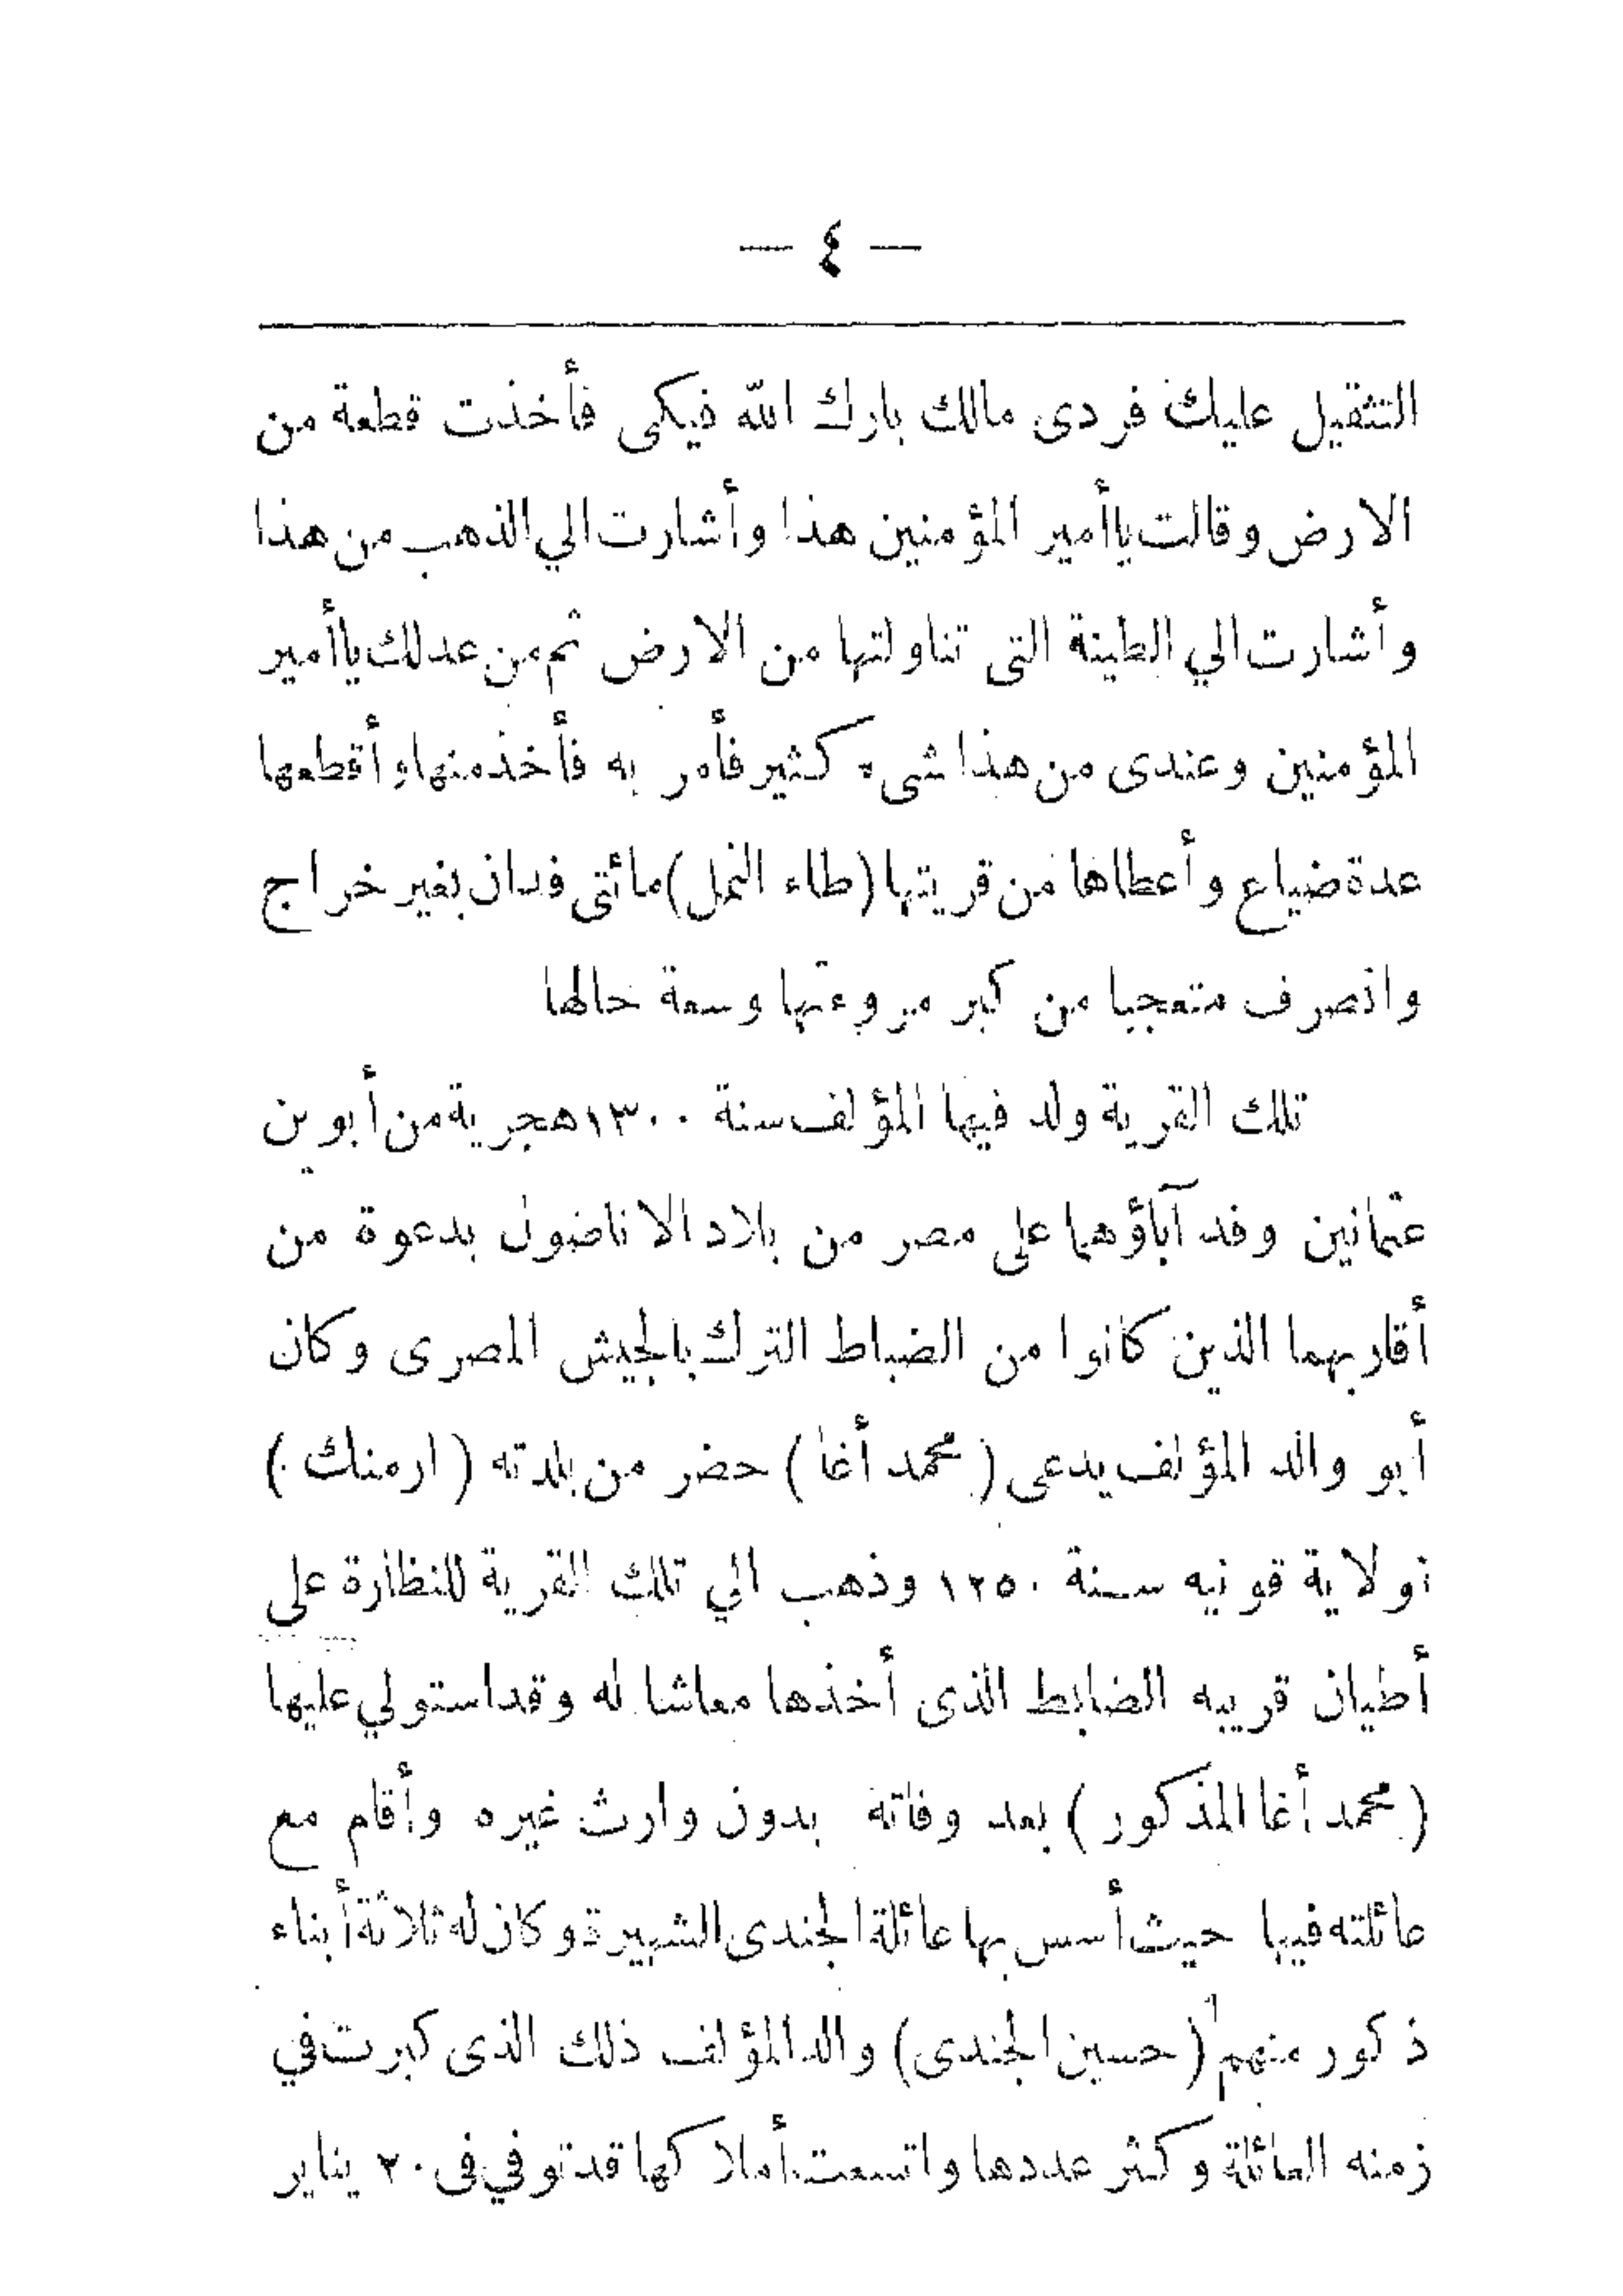 — ٤ —
التثقيل عليك فردى مالك بارك الله فيكى فأخذت قطعة من
الارض وقالت ياأمير المؤمنين هذا وأشارت الي الذهب من هذا
وأشارت الي الطينة التى تناولتها من الارض ثم من عدلك ياأمير
المؤمنين وعندى من هذا شىء كثير فأمر به فأخذ منها وأقطعها
عدة ضياع وأعطاها من قريتها (طاء النمل) مائتى فدان بغير خراج
وانصرف متعجبا من كبر مروءتها وسعة حالها
تلك القرية ولد فيها المؤلف سنة ١٣٠٠ هجرية من أبوين
عثمانين وفد آباؤهما على مصر من بلاد الاناضول بدعوة من
أقاربهما الذين كانوا من الضباط الترك بالجيش المصرى وكان
أبو والد المؤلف يدعى ( محمد أغا ) حضر من بلدته ( ارمنك )
بولاية قونيه سنة ١٢٥٠ وذهب الي تلك القرية للنظارة على
أطيان قريبه الضابط الذى أخذها معاشا له وقد استولي عليها
( محمد أغا المذكور ) بعد وفاته بدون وارث غيره وأقام مع
عائلته فيها حيث أسس بها عائلة الجندى الشهيرة وكان له ثلاثة أبناء
ذكور منهم (حسين الجندى) والد المؤلف ذلك الذى كبرت في
زمنه العائلة وكثر عددها واتسعت أملاكها قد توفي فى ٢٠ يناير